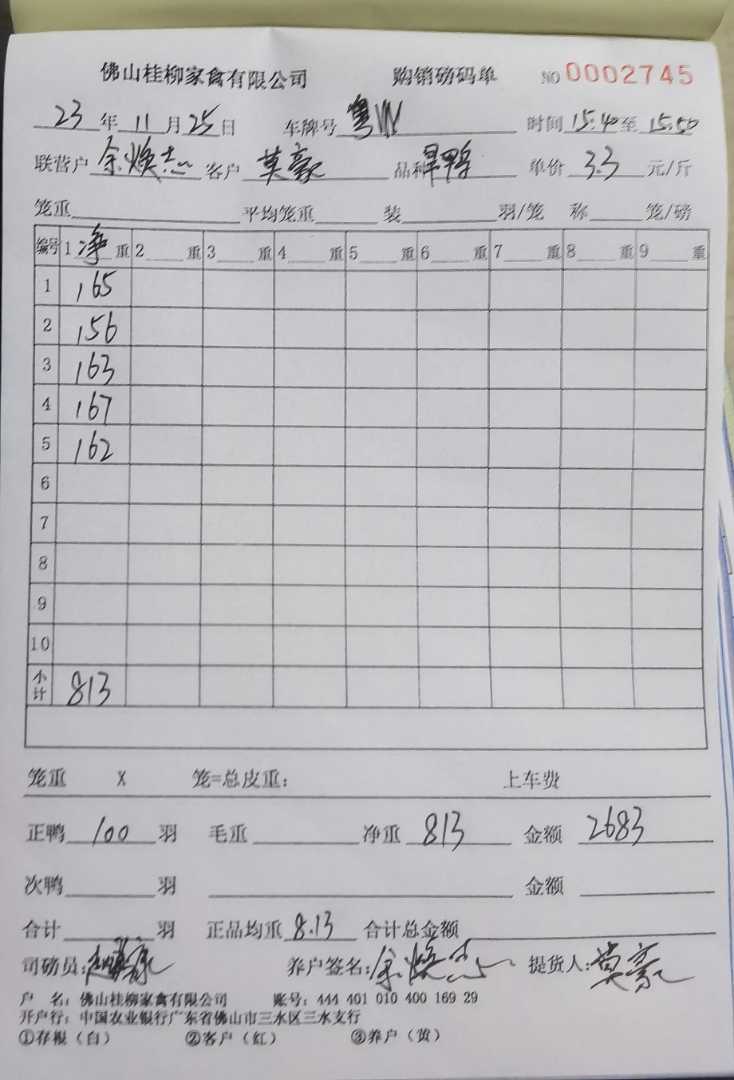 佛山桂柳家禽有限公司 购销磅码单 NO 0002745
23年11月25日 车牌号 粤W 时间15:40至15:50
联营户 余焕杰 客户 莫豪 品种 旱鸭 单价 3.3 元/斤
笼重 平均笼重 装 羽/笼 称 笼/磅
编号 1 净 重 2 重 3 重 4 重 5 重 6 重 7 重 8 重 9 重
1 165
2 156
3 163
4 167
5 162
6
7
8
9
10
小计 813
笼重 X 笼=总皮重: 上车费
正鸭 100 羽 毛重 净重 813 金额 2683
次鸭 羽 金额
合计 羽 正品均重 8.13 合计总金额
司磅员: 养户签名: 余焕杰 提货人: 莫豪
户 名: 佛山桂柳家禽有限公司 账号: 444 401 010 400 169 29
开户行: 中国农业银行广东省佛山市三水区三水支行
①存根(白) ②客户(红) ③养户(黄)